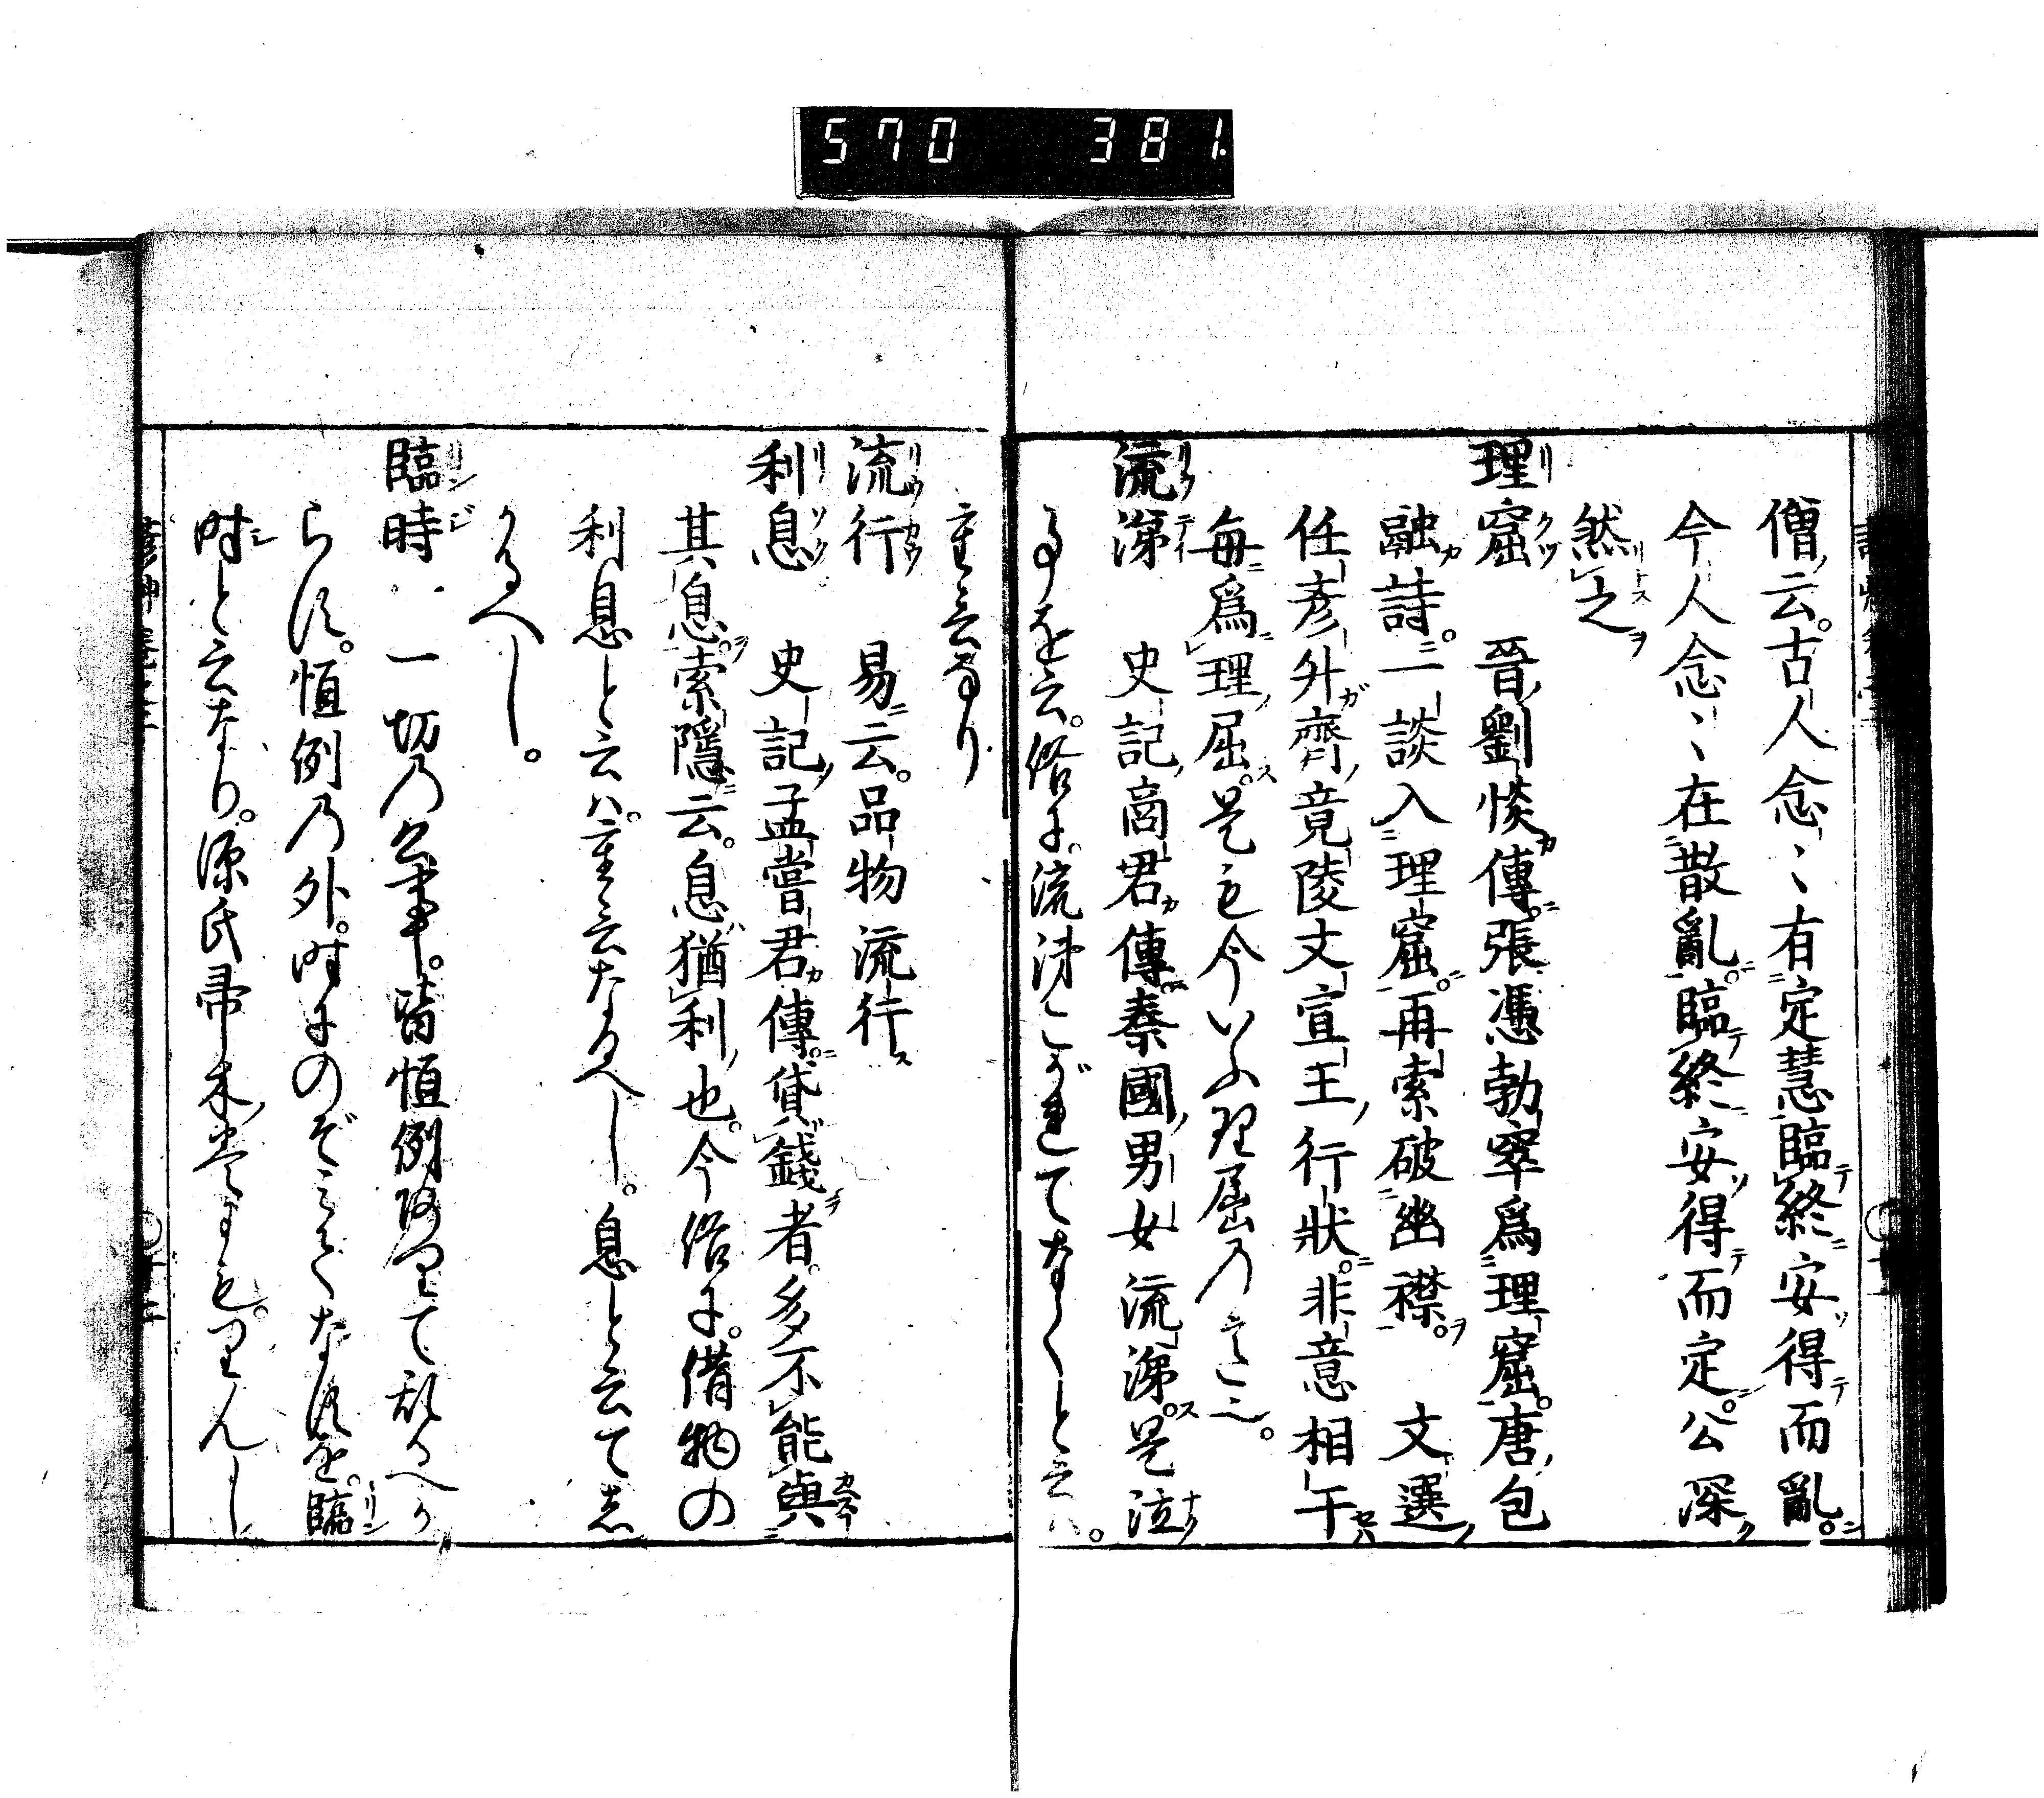 570 381
僧云。古人念〻有定慧臨終安得而亂。
今人念〻在散亂。臨終安得而定。公深
然之
理窟 晉劉惔傳。張憑勃窣爲理窟。唐包
融詩。一談入理窟。再索破幽襟。 文選
任彥外齊竟陵文宣王行狀。非意相干
毎爲理屈。是も今いふ理屈の
流涕 史記商君傳秦國男女流涕。是泣
事を云。俗に。流涕こがれてなくと云ハ。
重言なり
流行 易云。品物流行
利息 史記孟嘗君傳。貸錢者。多不能與
其息。索隱云。息猶利也。今俗に。借物の
利息と云ハ。重言なるへし。息と云て志
かるへし。
臨時 一切乃公事。皆恒例ありて私るへか
らす。恒例乃外。時にのぞミてくな須を。臨
時と云なり。源氏帚木巻にも。りんし